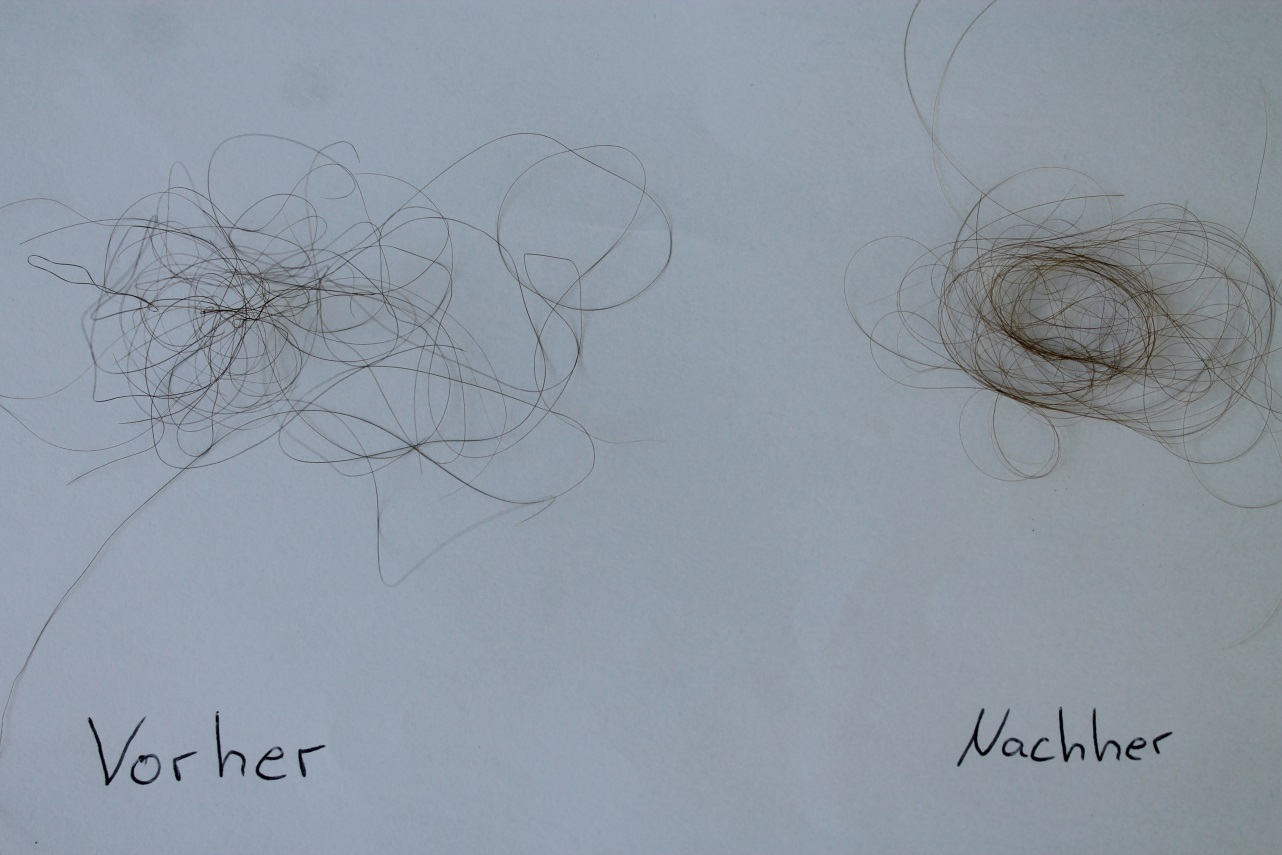 Vorher
Nachher